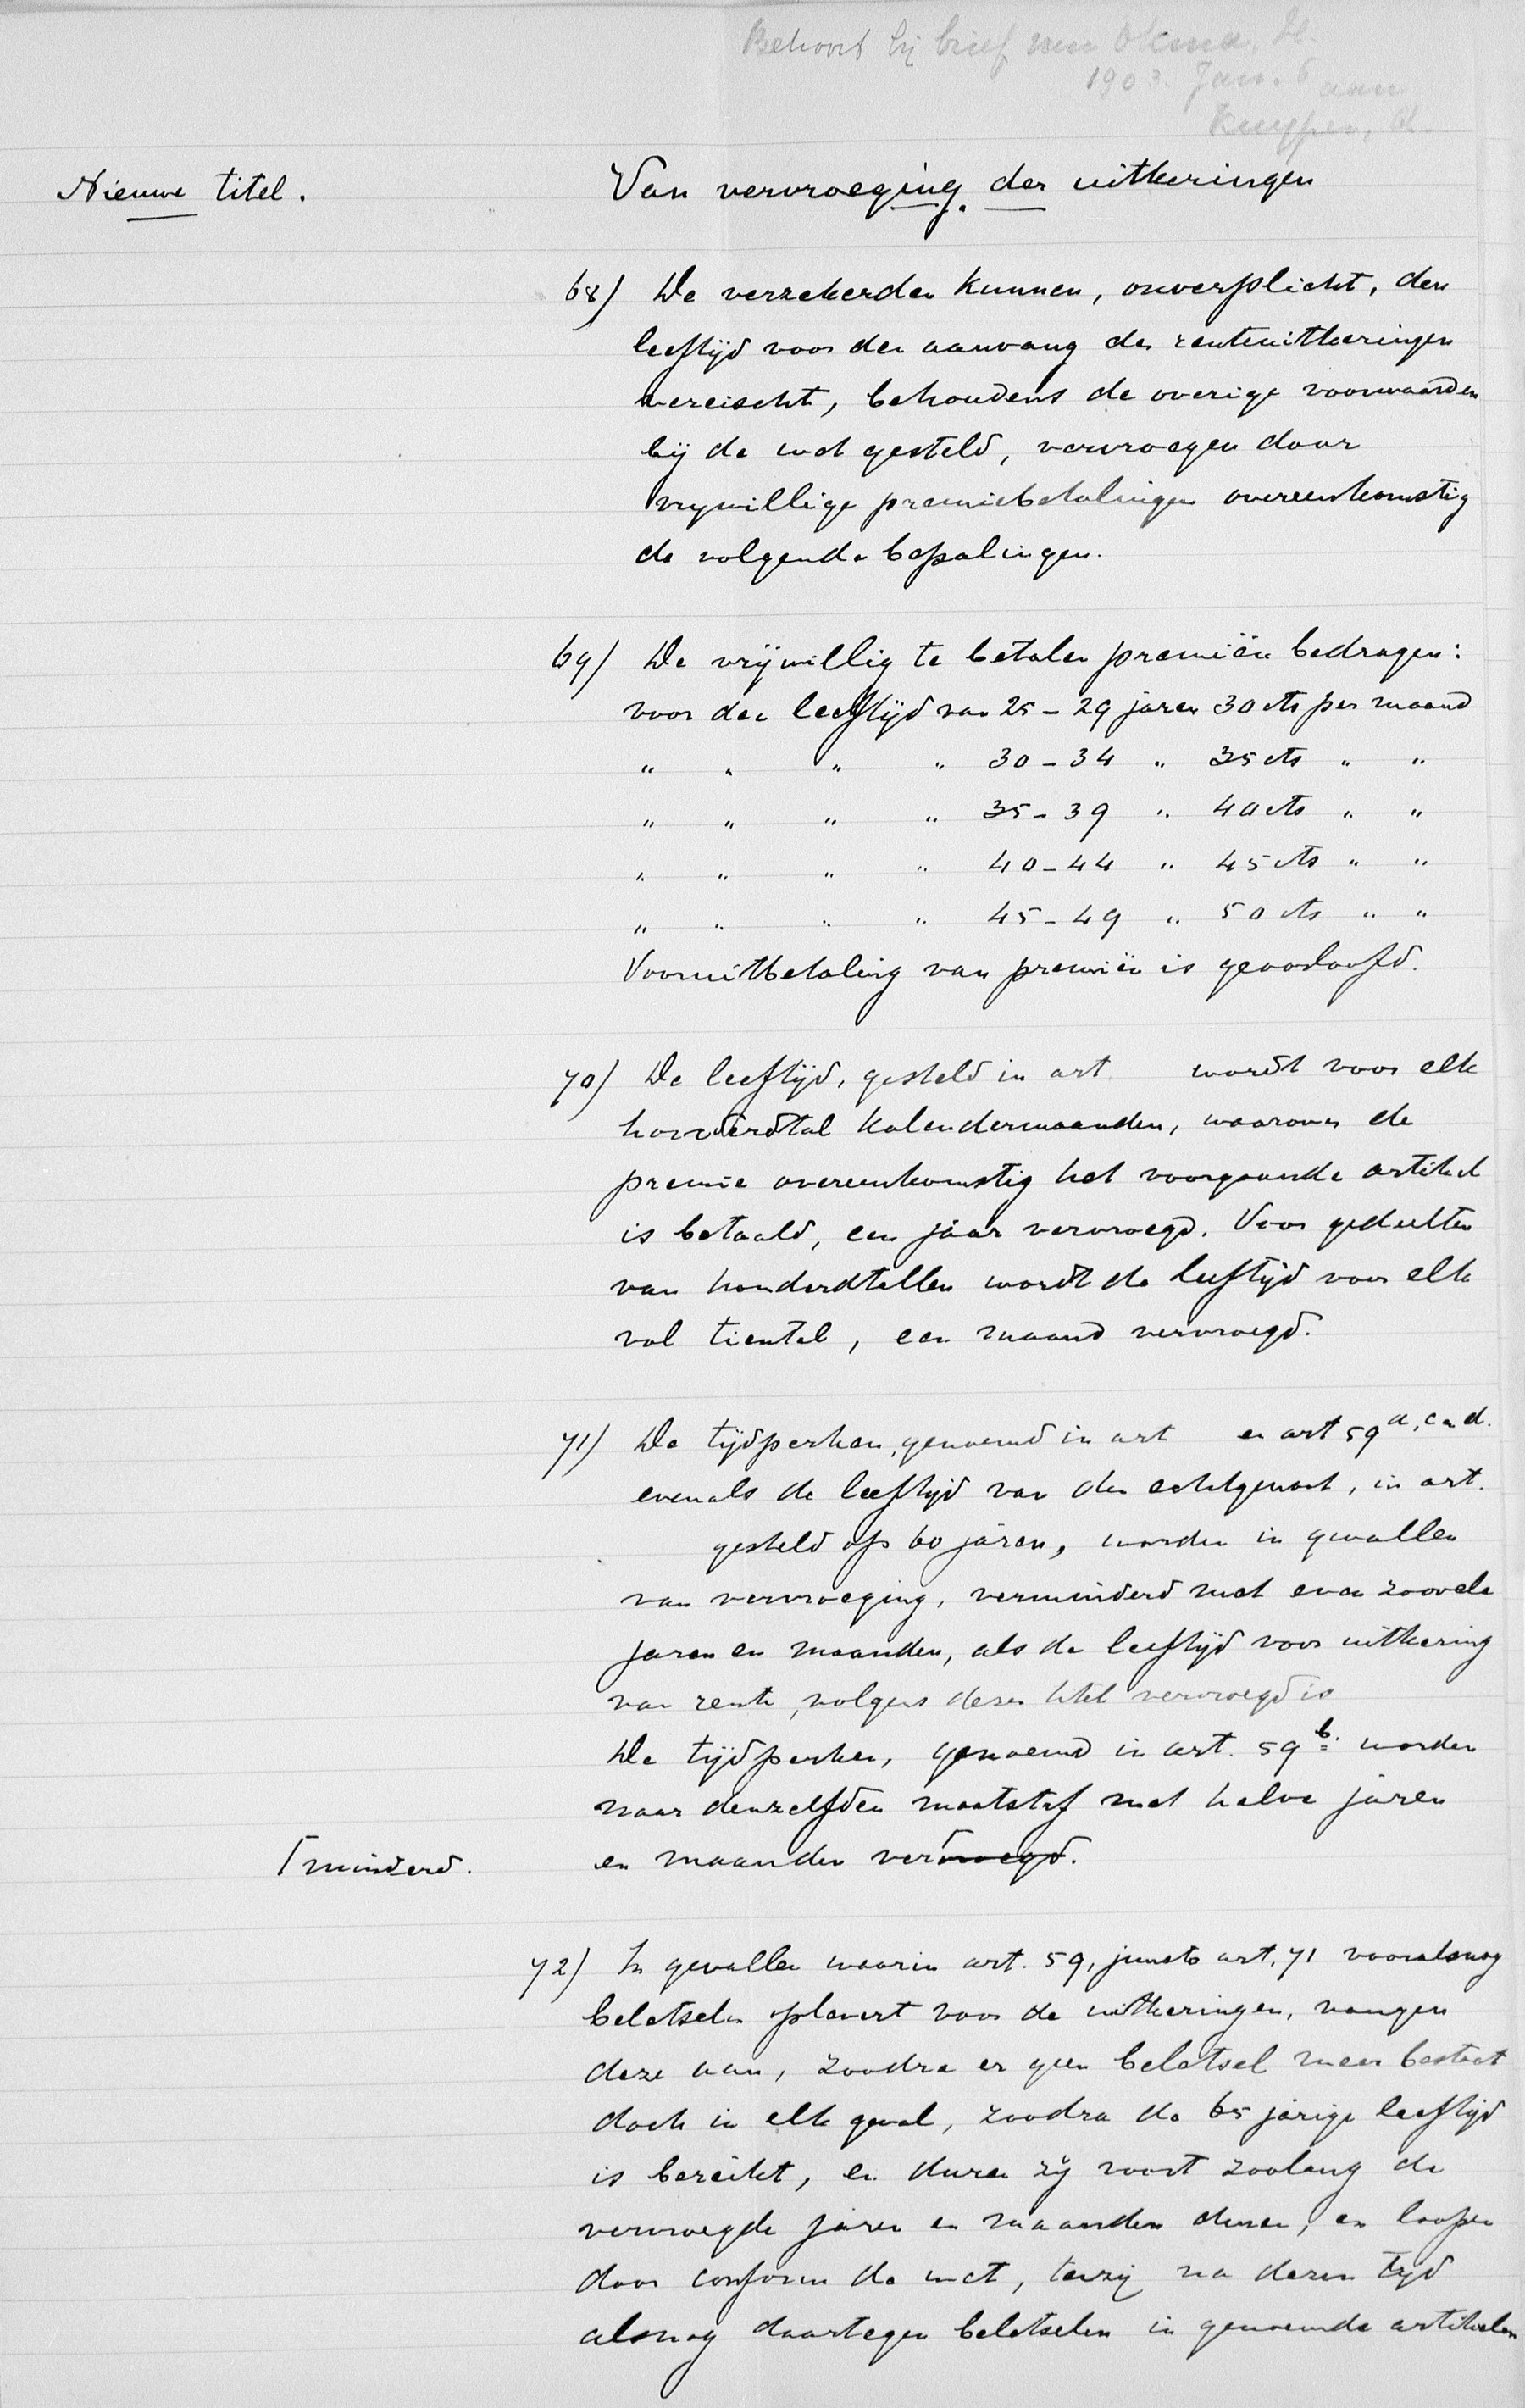 Behoort bij brief van Okma, H.
1903. Jan. 6 aan
Kuyper, A.
Nieuwe titel.
Van vervroeging der uitkeringen
68) De verzekerden kunnen, onverplicht, den
leeftijd voor den aanvang der rentenuitkeringen
vereischt, behoudens de overige voorwaarden
bij de wet gesteld, vervroegen door
vrijwillige premiebetalingen overeenkomstig
de volgende bepalingen.
69) De vrijwillig te betalen premiën bedragen:
voor den leeftijd van 25 - 29 jaren 30 cts per maand
" " " " 30 - 34 " 35 cts " "
" " " " 35 - 39 " 40 cts " "
" " " " 40 - 44 " 45 cts " "
" " " " 45 - 49 " 50 cts " "
Vooruitbetaling van premiën is geoorloofd.
70) De leeftijd, gesteld in art. wordt voor elk
honderdtal kalendermaanden, waarover de
premie overeenkomstig het voorgaande artikel
is betaald, een jaar vervroegd. Voor gedeelten
van honderdtallen wordt de leeftijd voor elk
vol tiental, een maand vervroegd.
71) De tijdperken, genoemd in art en art 59 a, c en d.
evenals de leeftijd van den echtgenoot, in art.
gesteld op 60 jaren, worden in gevallen
van vervroeging, verminderd met even zoovele
jaren en maanden, als de leeftijd voor uitkering
van rente, volgens dezen titel vervroegd is
De tijdperken, genoemd in art. 59 b. worden
naar denzelfden maatstaf met halve jaren
en maanden vervroegd.
⌈minderd.
72) In gevallen waarin art. 59, juncto art. 71 vooralsnog
beletselen oplevert voor de uitkeringen, vangen
deze aan, zoodra er geen beletsel meer bestaat
doch in elk geval, zoodra de 65 jarige leeftijd
is bereikt, en duren zij voort zoolang de
vervroegde jaren en maanden duren, en loopen
door conform de wet, tenzij na dezen tijd
alsnog daartegen beletselen in genoemde artikelen